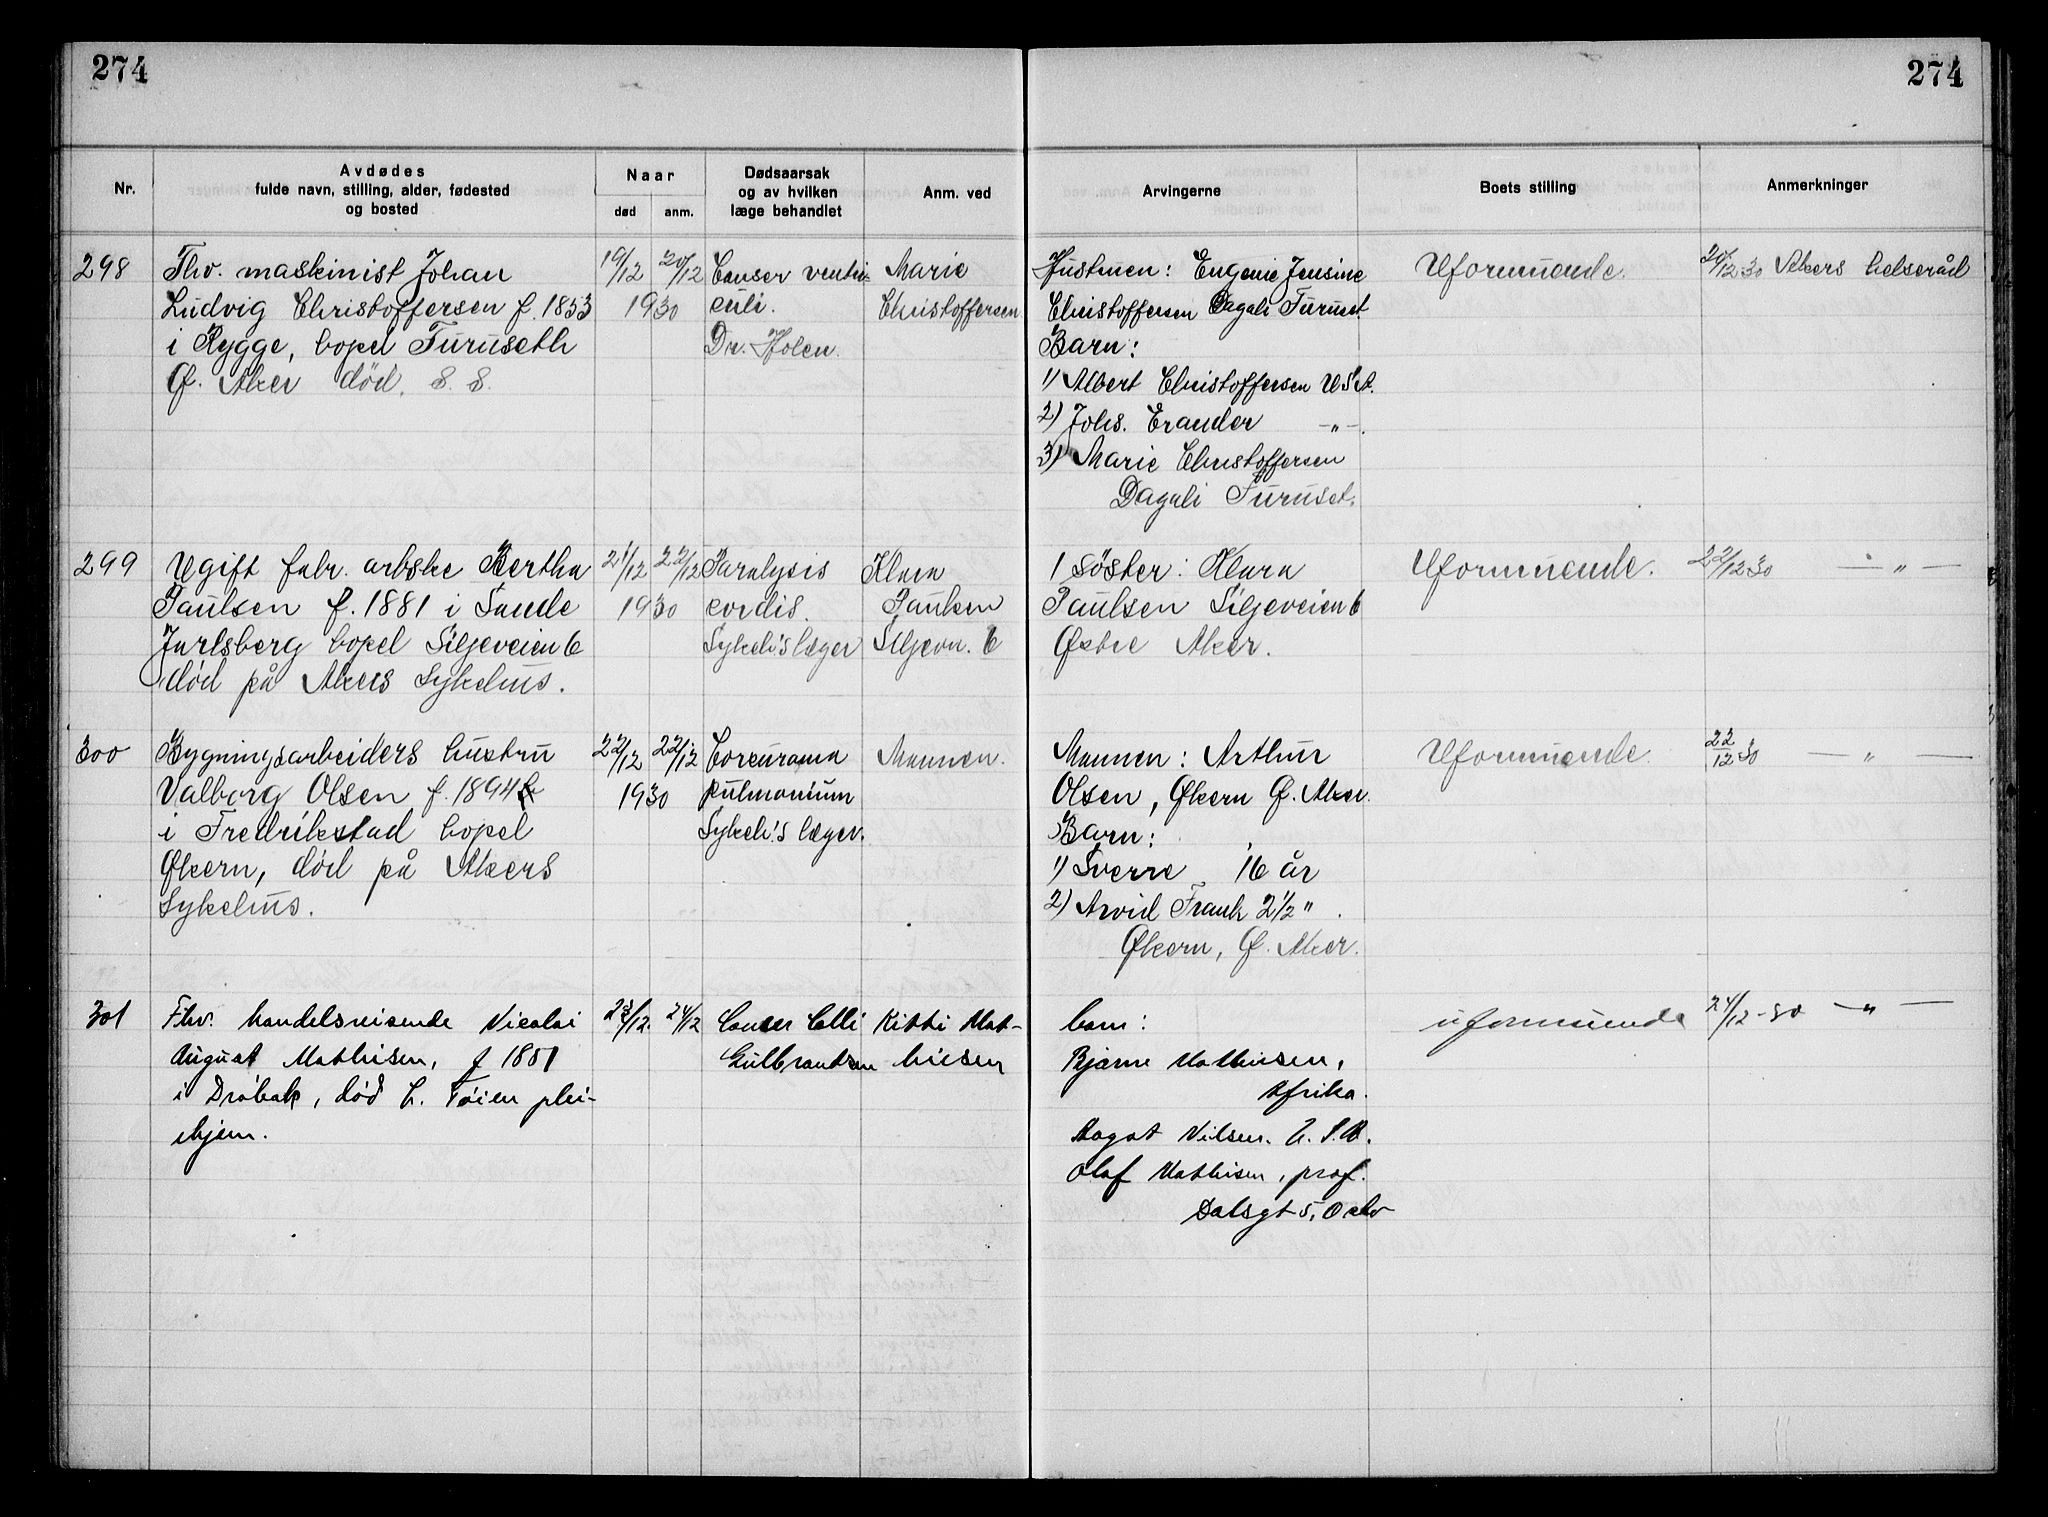 274
274
Nr.
Avdødes
fulde navn, stilling, alder, fødested
og bosted
Naar
død
anm.
Dødsaarsak
og av hvilken
læge behandlet
Anm. ved
Arvingerne
Boets stilling
Anmerkninger
298
Fhv. maskinist Johan
Ludvig Christoffersen f. 1853
i Rygge, bopel Furuseth
Ø. Aker død. s. s.
19/12 20/12
1930
Canser ventri-
culi.
Dr. Holen.
Marie
Christoffersen
Hustruen: Eugenie Jensine
Christoffersen Dagali Furuset
Barn:
1) Albert Christoffersen U S A.
2) Johs. Erander -"-.
3) Marie Christoffersen
Dagali Furuset.
Uformuende.
20/12 30 Akers helseråd
299
Ugift fabr. arbske Bertha
Paulsen f. 1881 i Sande
Jarlsberg bopel Siljeveien 6
død på Akers Sykehus.
21/12 22/12
1930
Paralysis
cordis.
Sykeh's læger
Klara
Paulsen
Siljevn. 6
1 Søster: Klara
Paulsen Siljeveien 6
Østre Aker.
Uformuende.
22/12 30 — " —
300
Bygningsarbeiders hustru
Valborg Olsen f. 1894
i Fredrikstad bopel
Økern, død på Akers
Sykehus.
22/12 22/12
1930
pulmonium
Sykeh's læger.
Mannen.
Mannen: Arthur
Olsen, Økern Ø. Aker.
Barn:
1) Sverre 16 år
2) Arvid Frank 2½ "
Økern, Ø. Aker.
Uformuende.
22/12 30 — " —
301
Fhv. handelsreisende Nicolai
August Mathisen, f 1851
i Drøbak, død L. Tøien plei-
ehjem.
23/12. 24/12
Cancer Colli
Gulbrandsen
Kitti Mat-
hiesen
barn:
Bjarne Mathiesen,
Afrika.
Aagot Nilsen. U. S. A.
Olaf Mathisen, prof.
Dalsgt 5, Oslo
uformuende
24/12 - 30 — " —